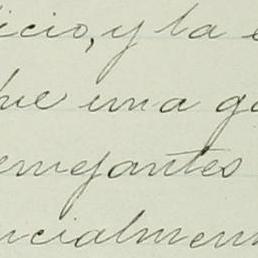 icio, y la e
que una ga
emejantes
ncialmen